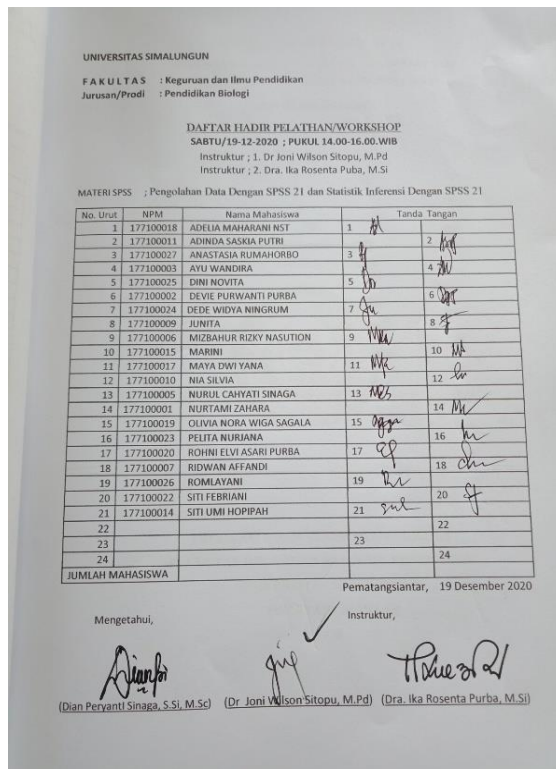 UNIVERSITAS SIMALUNGUN
FAKULTAS : Keguruan dan Ilmu Pendidikan
Jurusan/Prodi : Pendidikan Biologi
DAFTAR HADIR PELATHAN/WORKSHOP
SABTU/19-12-2020 ; PUKUL 14.00-16.00.WIB
Instruktur ; 1. Dr Joni Wilson Sitopu, M.Pd
Instruktur ; 2. Dra. Ika Rosenta Puba, M.Si
MATERI SPSS ; Pengolahan Data Dengan SPSS 21 dan Statistik Inferensi Dengan SPSS 21
No. Urut NPM Nama Mahasiswa Tanda Tangan
1 177100018 ADELIA MAHARANI NST 1
2 177100011 ADINDA SASKIA PUTRI 2
3 177100027 ANASTASIA RUMAHORBO 3
4 177100003 AYU WANDIRA 4
5 177100025 DINI NOVITA 5
6 177100002 DEVIE PURWANTI PURBA 6
7 177100024 DEDE WIDYA NINGRUM 7
8 177100009 JUNITA 8
9 177100006 MIZBAHUR RIZKY NASUTION 9
10 177100015 MARINI 10
11 177100017 MAYA DWI YANA 11
12 177100010 NIA SILVIA 12
13 177100005 NURUL CAHYATI SINAGA 13
14 177100001 NURTAMI ZAHARA 14
15 177100019 OLIVIA NORA WIGA SAGALA 15
16 177100023 PELITA NURJANA 16
17 177100020 ROHNI ELVI ASARI PURBA 17
18 177100007 RIDWAN AFFANDI 18
19 177100026 ROMLAYANI 19
20 177100022 SITI FEBRIANI 20
21 177100014 SITI UMI HOPIPAH 21
22 22
23 23
24 24
JUMLAH MAHASISWA
Pematangsiantar, 19 Desember 2020
Mengetahui, Instruktur,
(Dian Peryanti Sinaga, S.Si, M.Sc) (Dr Joni Wilson Sitopu, M.Pd) (Dra. Ika Rosenta Purba, M.Si)